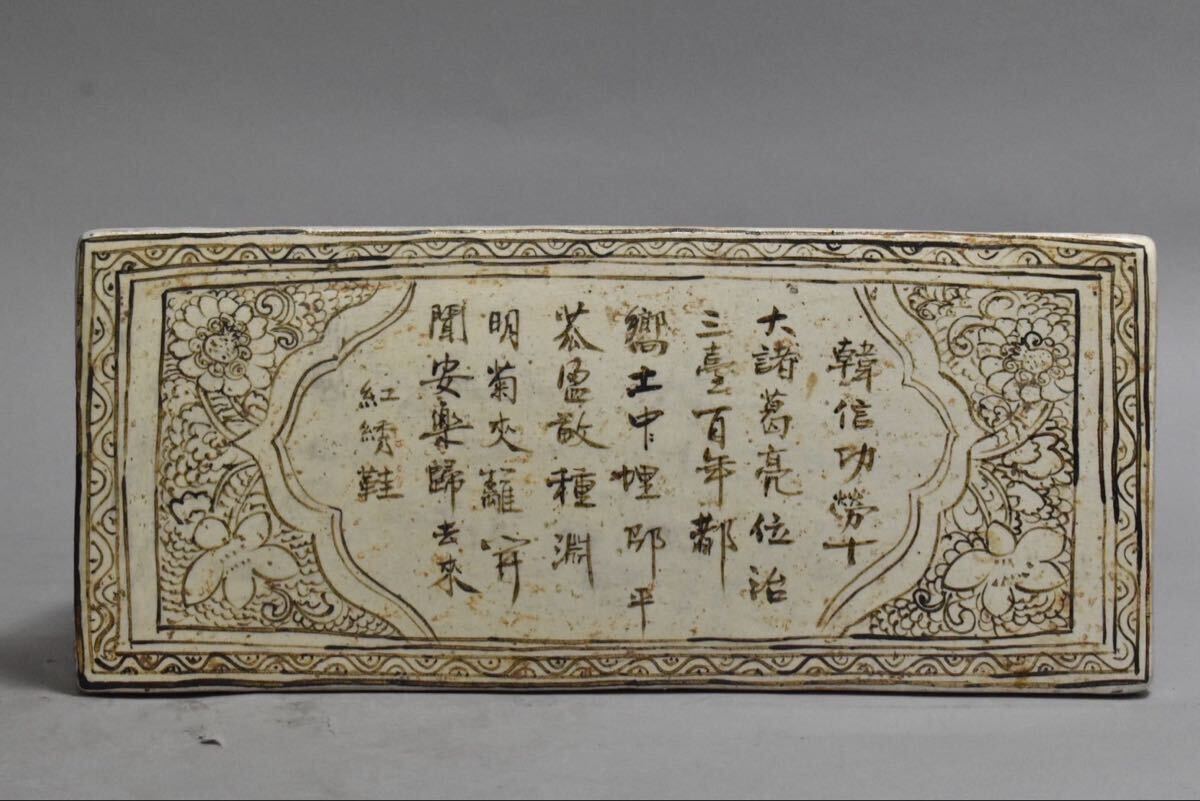 韓信功勞十
大諸葛亮位治
三臺百年都
鄉土中狸邸平
恭盈散種淵
明菊夾籬穽
聞安樂歸去來
紅绣鞋